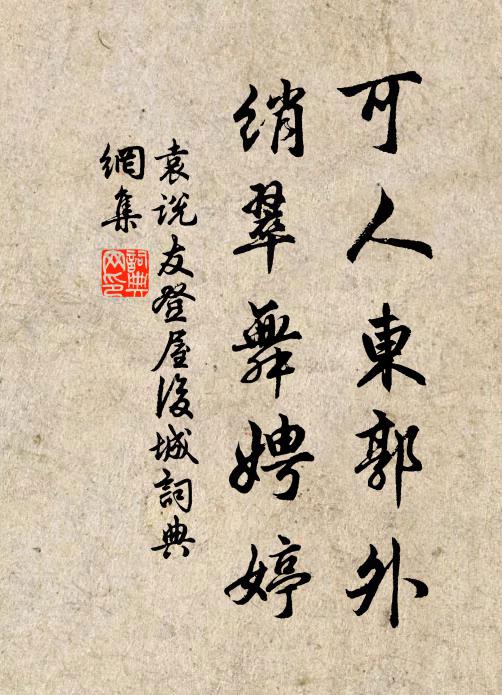 可人東郭外
綃翠舞娉婷
袁說友登屋後城詞典
網集
詞典
网印